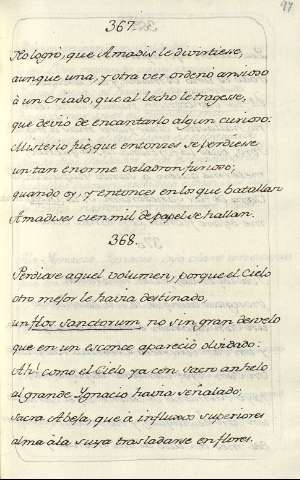 97
367.
No logrò, que Amadis le divirtiesse,
aunque una, y otra vez ordenò ansioso
à un Criado, que al lecho le tragesse,
que deviò de encantarlo algun curioso.
Misterio fuè, que entonzes se perdiesse
un tan enorme valadron furioso;
quando oy, y entonces en los que batallan
Amadises cien mil de papel se hallan.
368.
Perdiose aquel volumen, porque el Cielo
otro mejor le havia destinado,
un flos sanctorum, no sin gran desvelo
que en un esconce apareciò olvidado:
Ah! como el Cielo ya con sacro anhelo
al grande Ignacio havia señalado;
sacra Abeja, que à influxos superiores
alma à la suya trasladasse en flores.